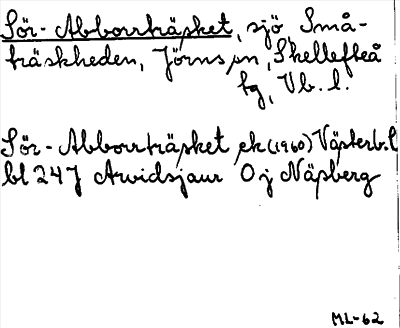 Sör-Abborrträsket, sjö, Små-
träskheden, Jörns sn, Skellefteå
tg, Vb. l.
Sör-Abborrträsket ek (1960) Västerb. l
bl 24J Arvidsjaur Oj Näsberg
ML-62